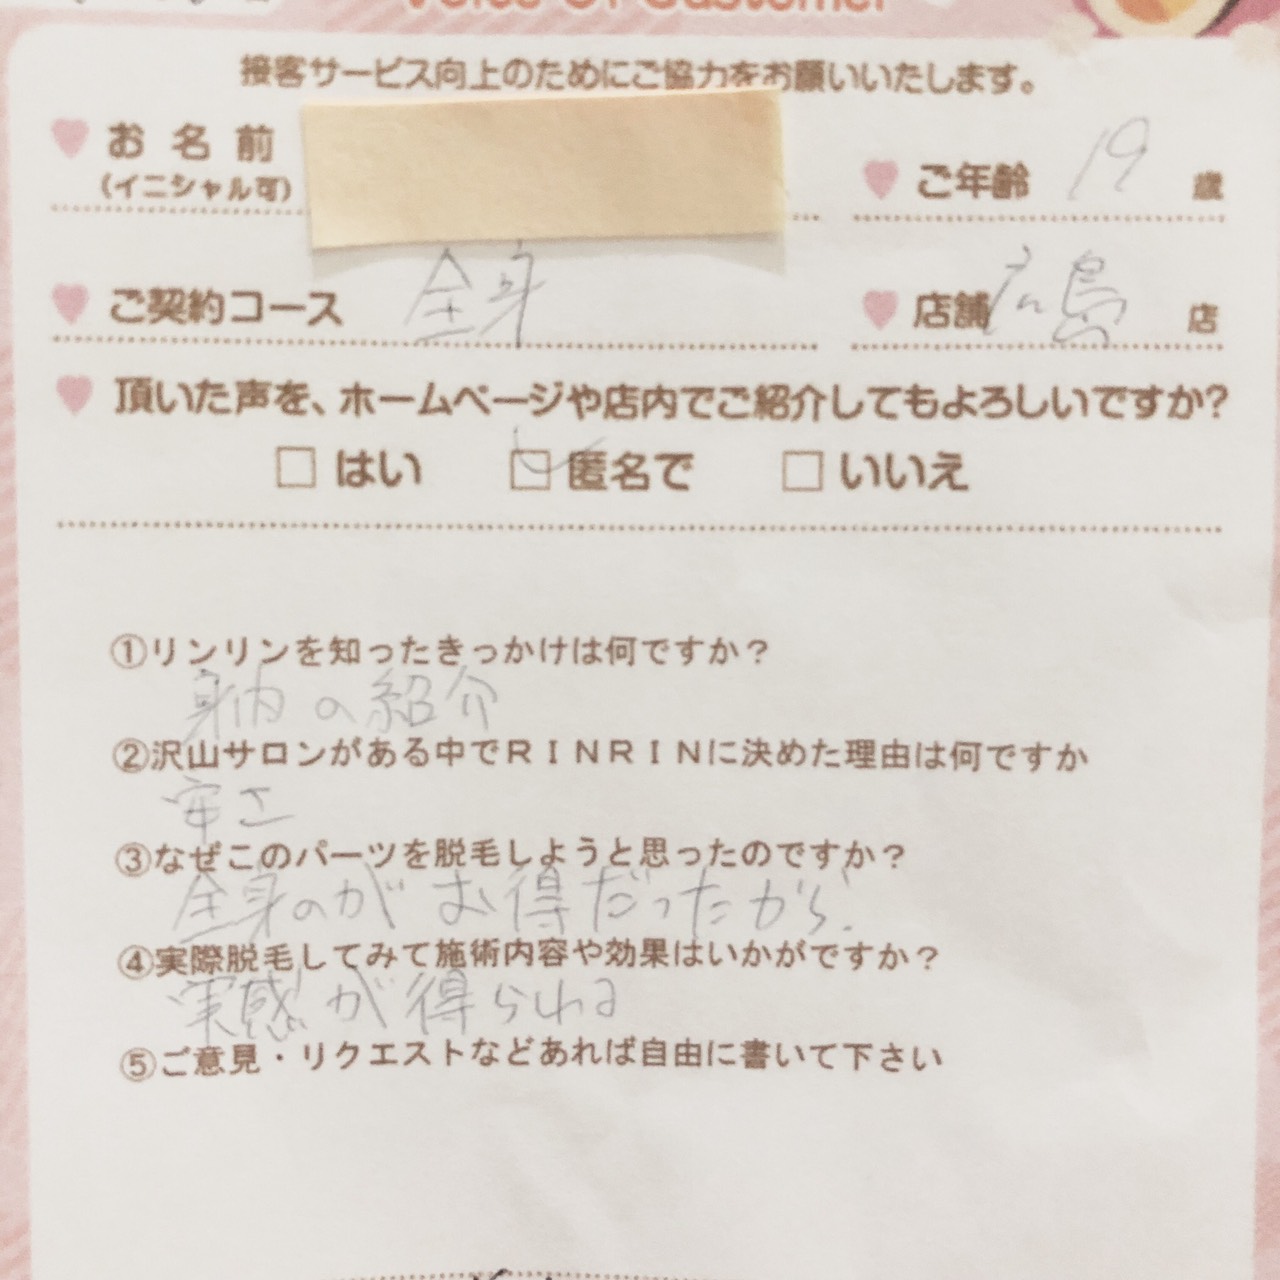 Voice Of Customer
接客サービス向上のためにご協力をお願いいたします。
お名前
(イニシャル可)
ご年齢 19 歳
ご契約コース 全身
店舗 広島 店
頂いた声を、ホームページや店内でご紹介してもよろしいですか?
はい 匿名で いいえ
①リンリンを知ったきっかけは何ですか？
身内の紹介
②沢山サロンがある中でＲＩＮＲＩＮに決めた理由は何ですか
安さ
③なぜこのパーツを脱毛しようと思ったのですか？
全身のがお得だったから.
④実際脱毛してみて施術内容や効果はいかがですか？
実感が得られる
⑤ご意見・リクエストなどあれば自由に書いて下さい